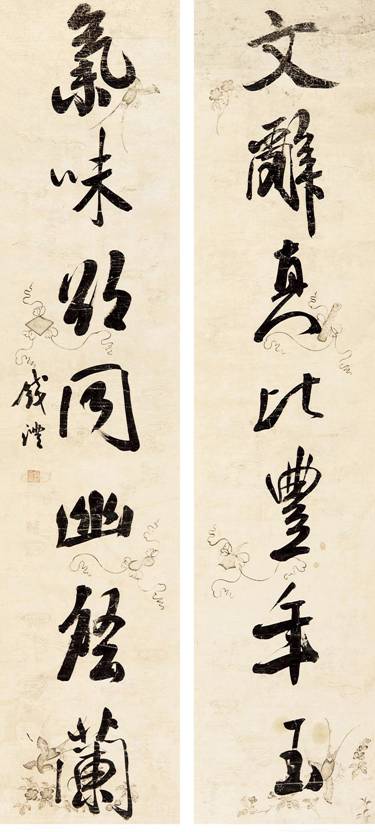 文辭真比豐年玉
氣味同幽蘭
錢灃